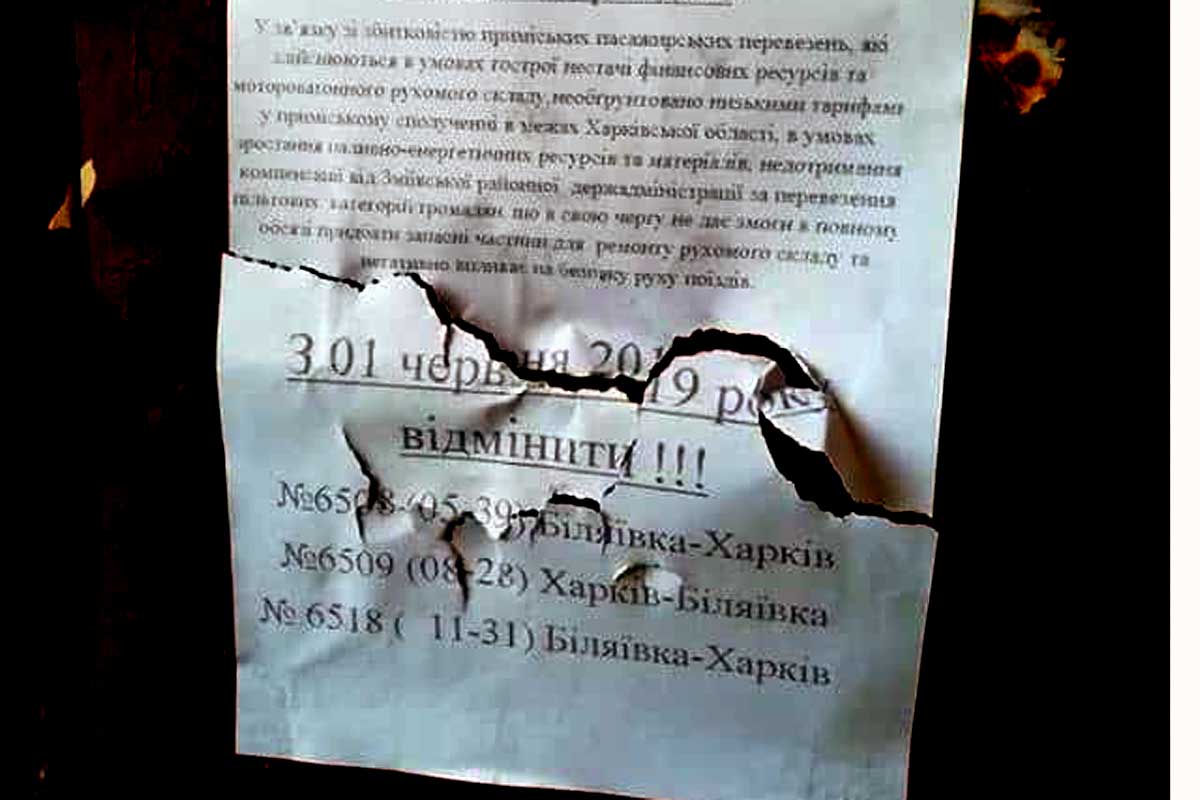 У зв'язку зі збитковістю приміських пасажирських перевезень, які
здійснюються в умовах гострої нестачі фінансових ресурсів та
моторовагонного рухомого складу, необґрунтовано низькими тарифами
у приміському сполученні в межах Харківської області, в умовах
зростання паливно-енергетичних ресурсів та матеріалів, недотримання
компенсації від Зміївської районної держадміністрації за перевезення
пільгових категорій громадян, що в свою чергу не дає змоги в повному
обсязі придбати запасні частини для ремонту рухомого складу та
негативно впливає на безпеку руху поїздів.
З 01 червня 2019 року
відмінити !!!
№6508 (05-39) Біляївка-Харків
№6509 (08-28) Харків-Біляївка
№ 6518 ( 11-31) Біляївка-Харків